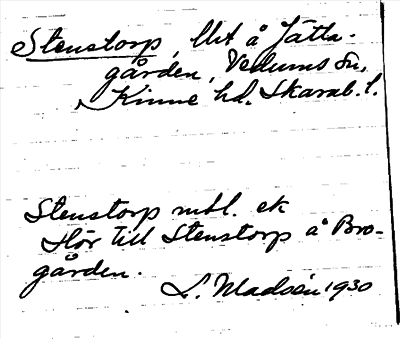 Stenstorp, lht å Jätta-
gården, Vedums sn,
Kinne hd. Skarab. l.
Stenstorp mtl. ek
Hör till Stenstorp å Bro-
gården.
L. Madsén 1930